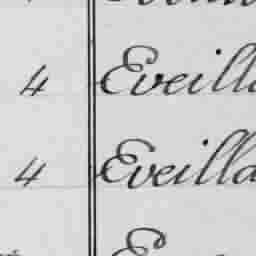 4 Eveilla
4 Eveilla